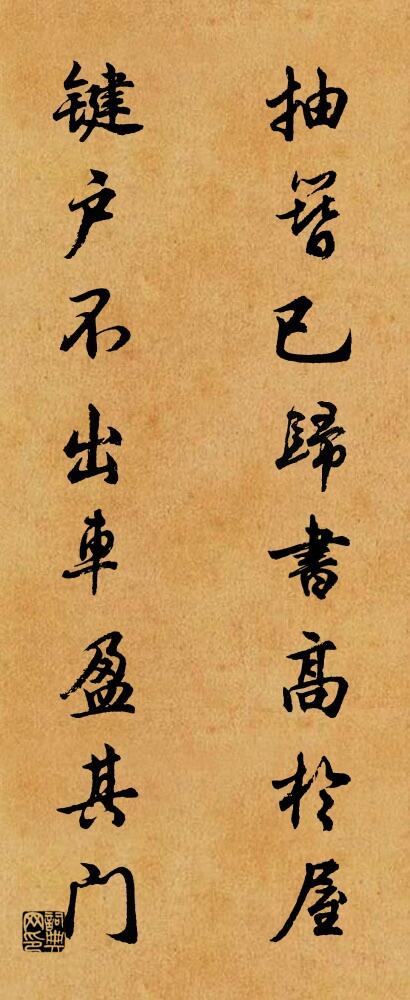 抽簪已歸書高於屋
鍵户不出車盈其门
詞典网印